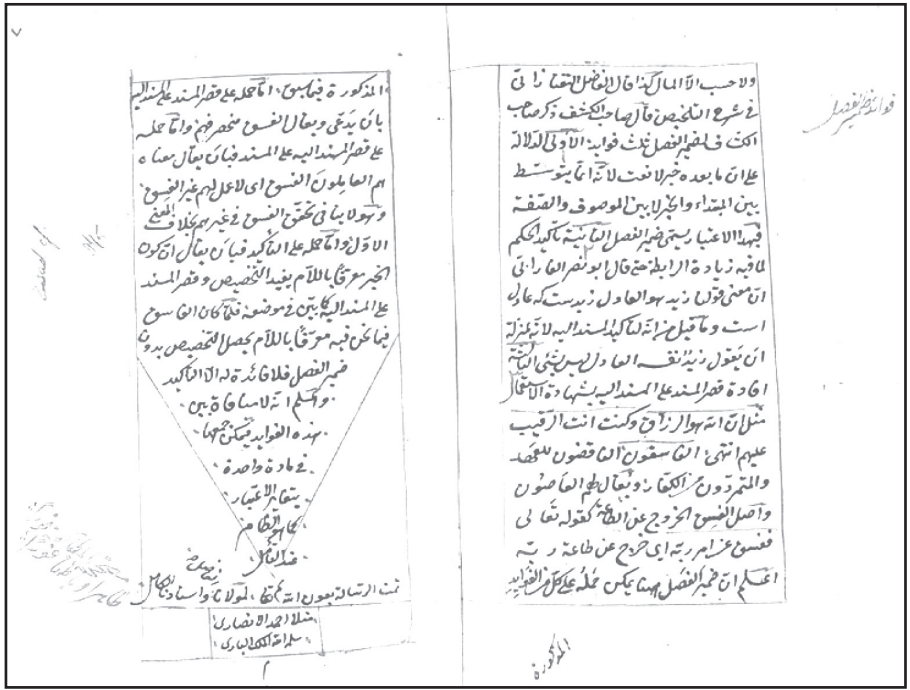 فوائد ضمير الفصل
ولا حسب الا المال كذا قال الفاضل التفتازانى
فى شرح التلخيص قال صاحب الكشف ذكر صاحب
الكشاف لضمير الفصل ثلث فوايد الاولى الدلالة
على ان ما بعده خبر لا نعت لانه انما يتوسط
بين المبتداء والخبر لا بين الموصوف والصفة
فبهذا الاعتبار يسمى ضمير الفصل الثانية تاكيد الحكم
لما فيه زيادة الرابطة حتى قال ابو نصر الفارابى
ان معنى قولنا زيد هو العادل زيدست كه عادل
است وما قيل من انه لتاكيد المسند اليه لانه بمنزلة
ان يقول زيد نفسه العادل ليس بشئ الثالثة
افادة قصر المسند على المسند اليه بشهادة الاستعمال
مثل ان الله هو الرزاق وكنت انت الرقيب
عليهم انتهى الفاسقون الناقضون للعهد
والمتمردون من الكفار ويقال لهم العاصون
واصل الفسق الخروج عن الطاعة كقوله تعالى
ففسق عن امر ربه اى خرج عن طاعة ربه
اعلم ان ضمير الفصل ههنا يمكن حمله على كل من الفوايد
المذكورة
٧
المذكورة فيما سبق اما حمله على قصر المسند على المسند اليه
بان يدعى ويقال الفسق منحصر فيهم واما حمله
على قصر المسند اليه على المسند فبان يقال معناه
هم العاملون الفسق اى لا عمل لهم غير الفسق
وهو لا ينافى تحقق الفسق فى غيرهم بخلاف المعنى
الاول واما حمله على التاكيد فبان يقال ان كون
الخبر معرفا باللام يفيد التخصيص وقصر المسند
على المسند اليه كما بين فى موضعه فلما كان الفاسق
فيما نحن فيه معرفا باللام يحصل التخصيص بدون
ضمير الفصل فلا فائدة له الا التاكيد
واعلم انه لا منافاة بين
هذه الفوايد فيمكن جمعها
فى مادة واحدة
بتغاير الاعتبار
كما هو الظاهر
عند التأمل
تمت الرسالة بعون الله لمولانا واستادنا
ملا احمد الانصارى
سلمه الله الملك البارى